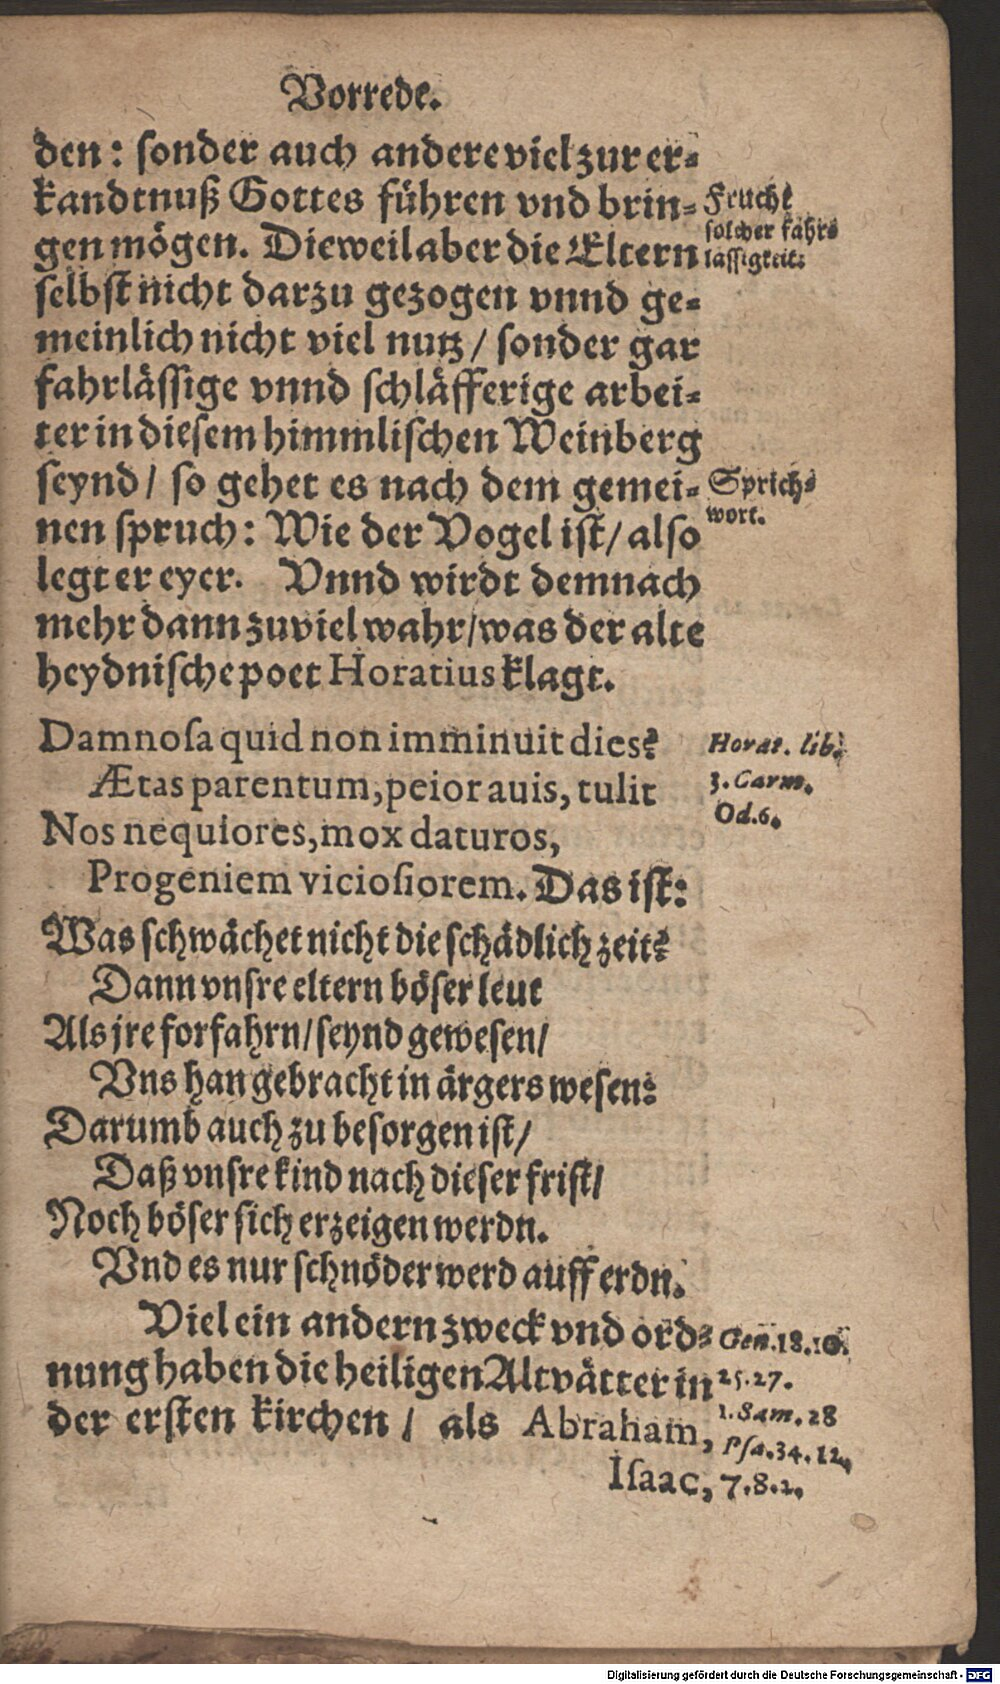 Vorrede.
den: sonder auch andere viel zur er-
kandtnuß Gottes führen vnd brin-
gen mögen. Dieweil aber die Eltern
selbst nicht darzu gezogen vnnd ge-
meinlich nicht viel nutz / sonder gar
fahrlässige vnnd schläfferige arbei-
ter in diesem himmlischen Weinberg
seynd / so gehet es nach dem gemei-
nen spruch: Wie der Vogel ist / also
legt er eyer. Vnnd wirdt demnach
mehr dann zuviel wahr / was der alte
heydnische poet Horatius klagt.
Frucht
solcher fahr-
lässigkeit.
Sprich-
wort.
Damnoſa quid non imminuit dies?
Ætas parentum, peior auis, tulit
Nos nequiores, mox daturos,
Progeniem vicioſiorem. Das ist:
Horat. lib.
3. Carm.
Od. 6.
Was schwächet nicht die schädlich zeit?
Dann vnsre eltern böser leut
Als jre forfahrn / seynd gewesen /
Vns han gebracht in ärgers wesen:
Darumb auch zu besorgen ist /
Daß vnsre kind nach dieser frist /
Noch böser sich erzeigen werdn.
Vnd es nur schnöder werd auff erdn.
Viel ein andern zweck vnd ord-
nung haben die heiligen Altvätter in
der ersten kirchen / als Abraham,
Iſaac,
Gen. 18. 10.
25. 27.
1. Sam. 28
Pſa. 34. 12.
7. 8. 2.
Digitalisierung gefördert durch die Deutsche Forschungsgemeinschaft - DFG